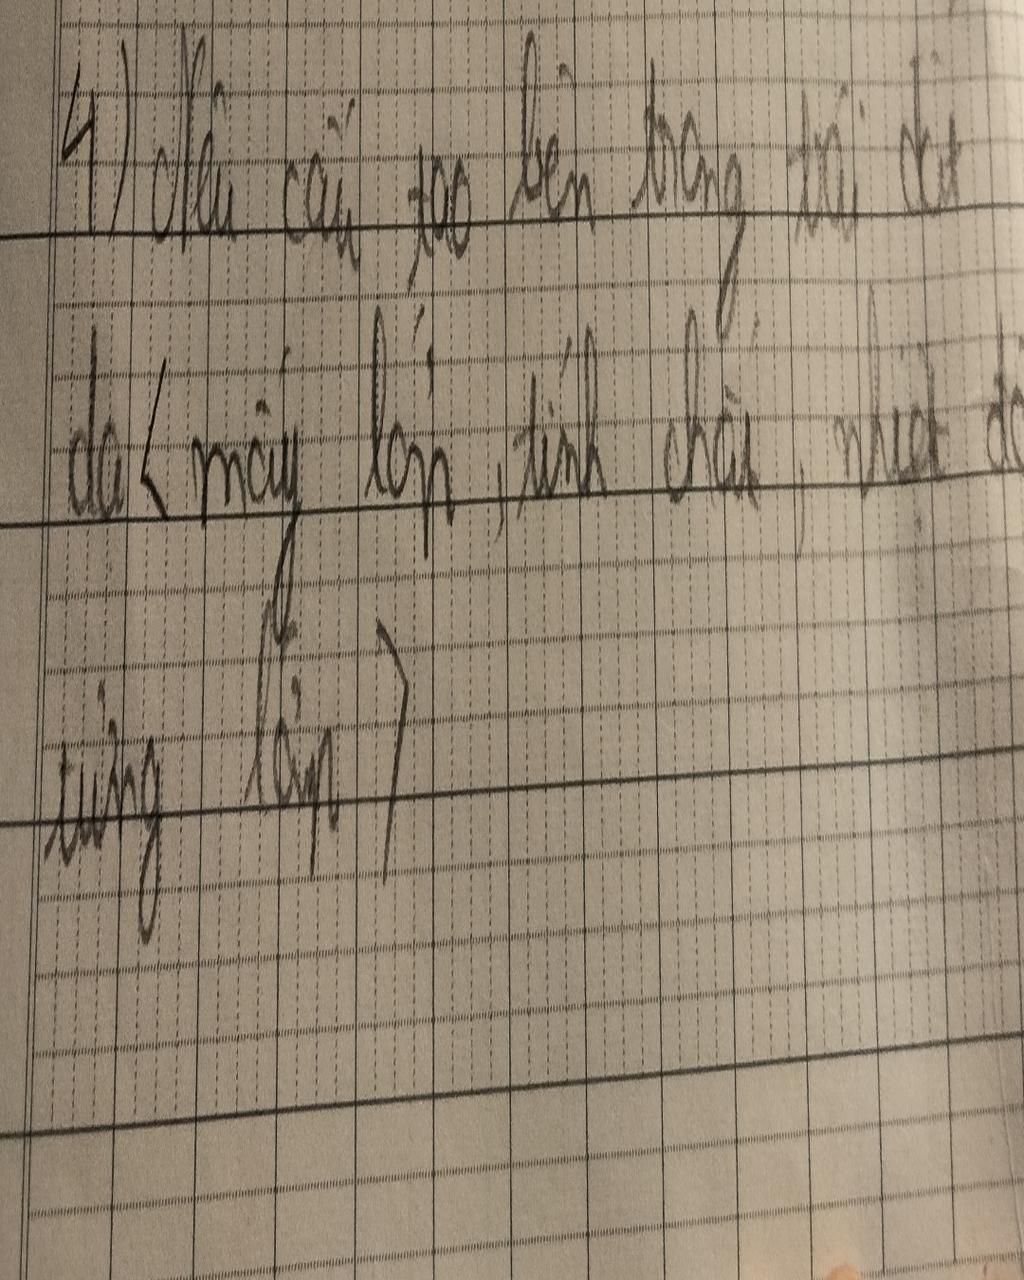 4) Nêu cấu tạo bên trong trái đất
da < mấy lớp, tính chất, nhiệt độ
từng lớp >